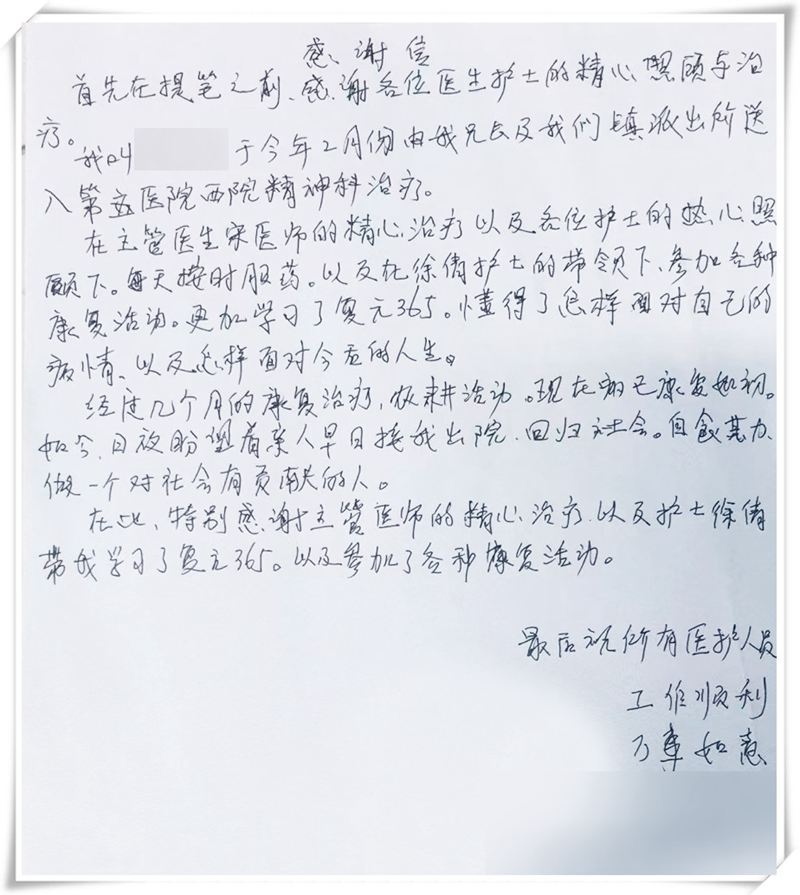 感谢信
首先在提笔之前、感谢各位医生护士的精心照顾与治
疗。
我叫 于今年2月份由我兄长及我们镇派出所送
入第五医院西院精神科治疗。
在主管医生宋医师的精心治疗以及各位护士的热心照
顾下。每天按时服药。以及在徐倩护士的带领下、参加各种
康复活动。更加学习了复元365。懂得了怎样面对自己的
病情、以及怎样面对今后的人生。
经过几个月的康复治疗,农耕活动。现在病已康复如初。
如今、日夜盼望着亲人早日接我出院、回归社会。自食其力、
做一个对社会有贡献的人。
在此、特别感谢主管医师的精心治疗、以及护士徐倩
带我学习了复元365。以及参加了各种康复活动。
最后祝所有医护人员
工作顺利
万事如意